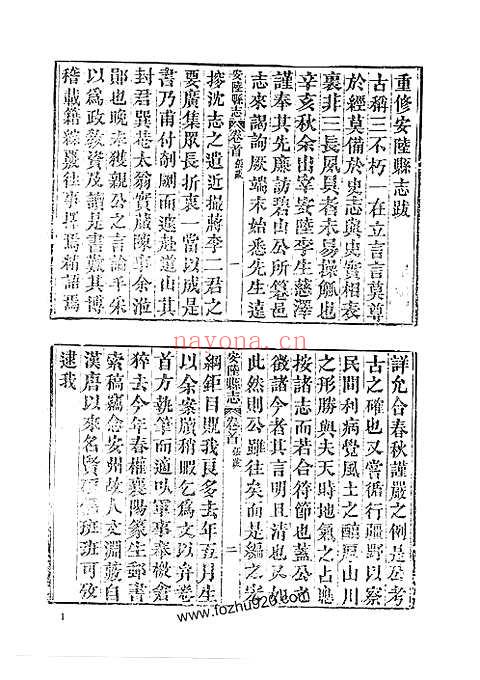 重修安陸縣志跋
古稱三不朽一在立言言莫尊
於經莫備於史志與史實相表
裏非三長夙具者未易操觚也
辛亥秋余出宰安陸李生慈澤
謹奉其先廉訪碧山公所纂邑
志來謁諭厥端末始悉先生遠
安陸縣志 卷首 張跋 一
搜沈志之遺近撮蔣李二君之
要廣集眾長折衷一當以成是
書乃甫付剞劂而遽赴道山其
封君巽巷太翁實蕆陳事余涖
鄖也晚未獲親公之言論手朱
以為政教資及讀是書歎其博
稽載籍綜覈往事擇焉精語焉
詳允合春秋謹嚴之例是公考
古之確也又嘗循行疆野以察
民間利病覺風土之醇厚山川
之形勝與夫天時地氣之占應
按諸志而若合符節也蓋公者
徵諸今者其言明且清也又如
此然則公雖往矣而是編之宏
安陸縣志 卷首 張跋 二
綱鉅目貺我良多去年五月生
以余案牘稍暇乞為文以弁卷
首方執筆而適以軍事奉檄倉
猝去今年春權襄陽篆生郵書
索稿竊念安州故人文淵藪自
漢唐以來名賢碩彥班班可攷
逮我
nayona.cn
www.fozhu920.com
1